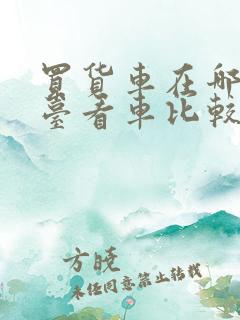 買货車在哪
臺看車比較
方曉
未经同意禁止转载